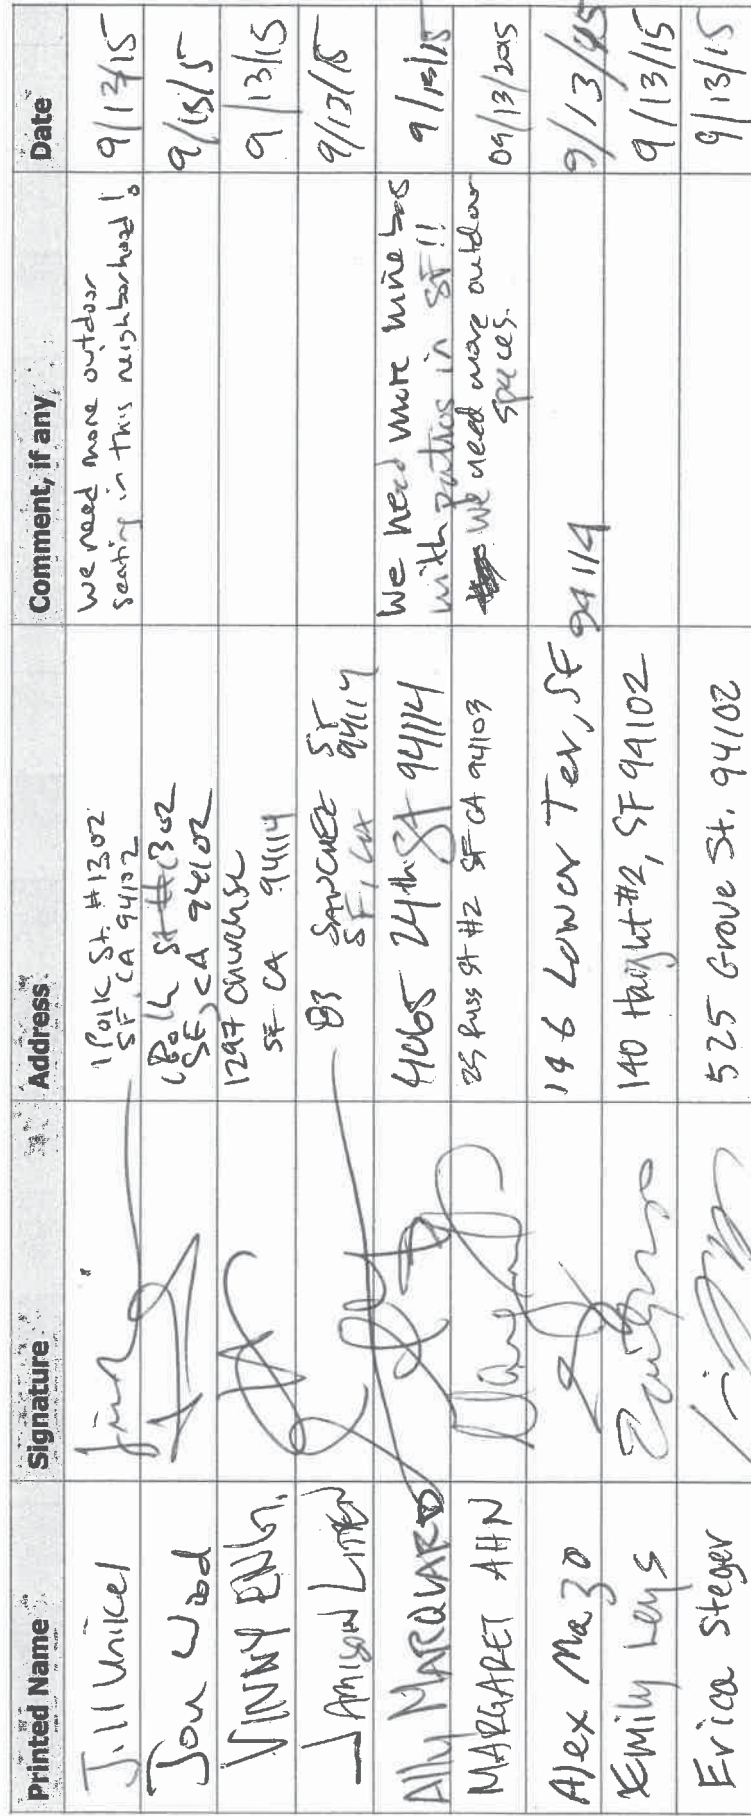 Printed Name Signature Address Comment, if any Date
Jill Unikel 1 Polk St. #1302 We need more outdoor 9/13/15
SF, CA 94102 seating in this neighborhood!
Jon Wood 1 Polk St #1302 9/13/15
SF, CA 94102
VINNY ENG. 1297 Church St 9/13/15
SF CA 94114
JAMISON 83 SANCHEZ ST 9/13/15
SF, CA 94114
Ally MARQUARD 4065 24th St 94114 We need more wine bars 9/13/15
with patios in SF!!
MARGARET AHN 25 Russ St #2 SF CA 94103 We need more outdoor 09/13/2015
spaces.
Alex Mazo 146 Lower Ter, SF 94114 9/13/15
Emily Leys 140 Haight #2, SF 94102 9/13/15
Erica Steger 525 Grove St. 94102 9/13/15